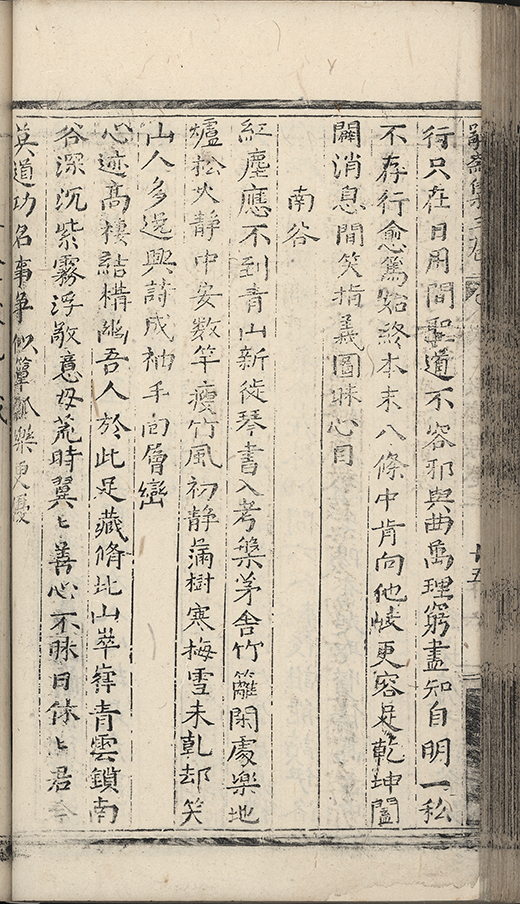 行只在日用間聖道不容邪與曲萬理窮盡知自明一私
不存行愈篤始終本末八條中肯向他岐更容足乾坤闔
闢消息間笑指羲圖眛心目
南谷
紅塵應不到青山新徙琴書入考槃茅舍竹籬閑處樂地
爐松火靜中安數竿瘦竹風初靜滿樹寒梅雪未乾却笑
山人多逸興詩成袖手向層巒
心迹高棲結構幽吾人於此足藏脩北山崒嵂青雲鎖南
谷深沉紫霧浮敬意毋荒時翼〻善心不眛日休〻君今
莫道功名事爭似簞瓢樂更優